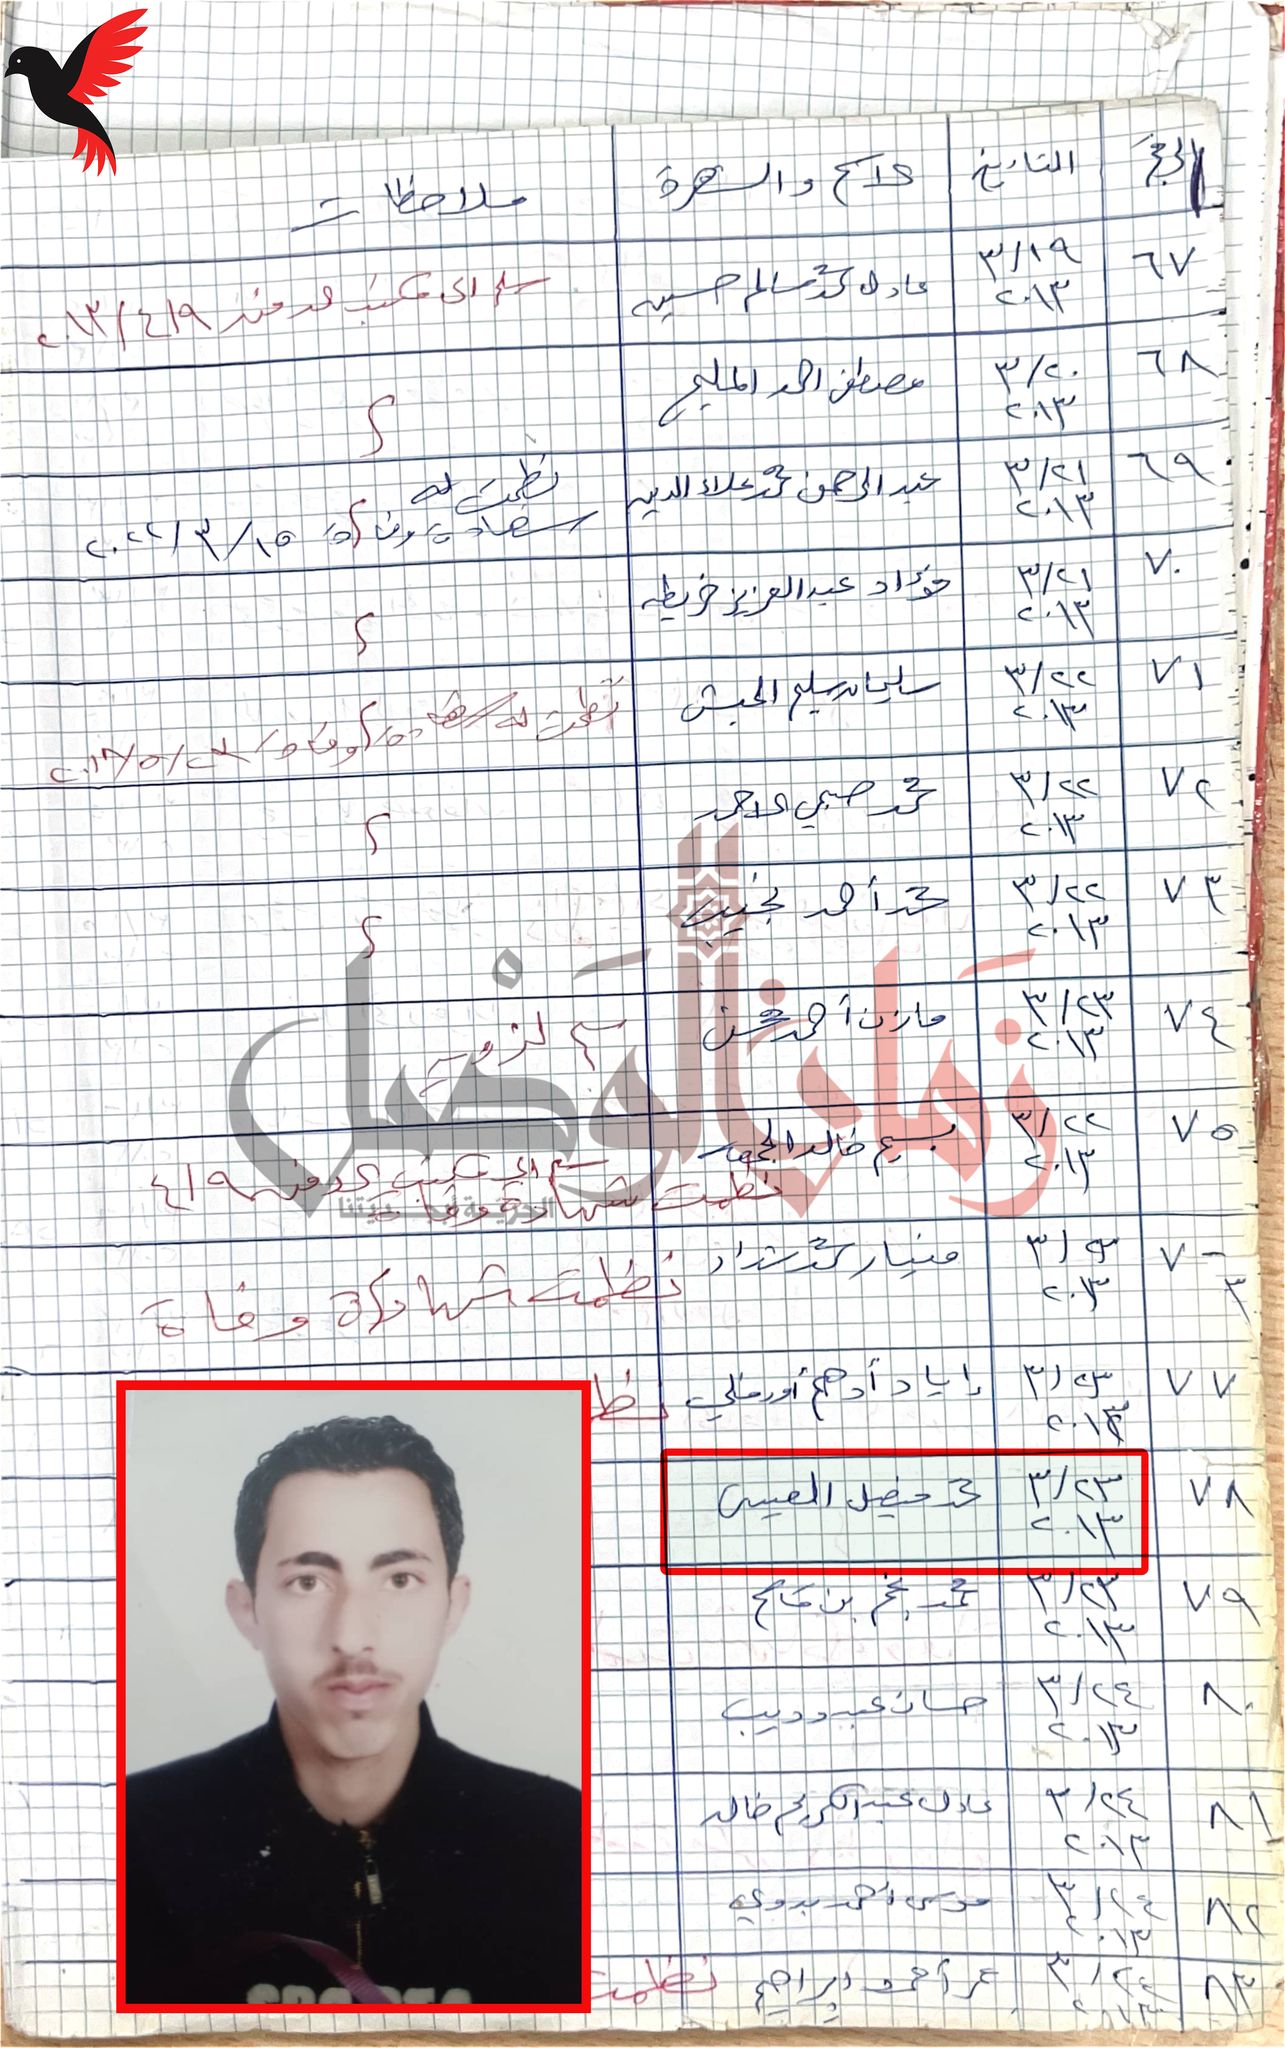 الرقم التاريخ الاسم والشهرة ملاحظات
٦٧ ٣/١٩ ٢٠١٣ عادل محمد سالم حسين سلم الى مكتب الدفن ٤/٩ ٢٠١٣
٦٨ ٣/٢٠ ٢٠١٣ مصطفى احمد المليح ؟
٦٩ ٣/٢١ ٢٠١٣ عبد الرحمن محمد علاء الدين نظمت له
شهادة وفاة ٢٠٢٢/٣/١٥
٧٠ ٣/٢١ ٢٠١٣ فؤاد عبد العزيز خريطه ؟
٧١ ٣/٢٢ ٢٠١٣ سليمان سليم الحبش نظمت له شهادة وفاة
٧٢ ٣/٢٢ ٢٠١٣ محمد صبحي الاحمد ؟
٧٣ ٣/٢٢ ٢٠١٣ محمد أحمد نجيب ؟
٧٤ ٣/٢٣ ٢٠١٣ مازن أحمد محسن سلم لزويه
٧٥ ٣/٢٢ ٢٠١٣ بسيم خالد سلم الى مكتب الدفن ٤/٩
نظمت شهادة وفاة
٧٦ ٣/٢٣ ٢٠١٣ محمد شداد نظمت شهادة وفاة
٧٧ ٣/٢٣ ٢٠١٣ إياد أدهم أورفلي
٧٨ ٣/٢٣ ٢٠١٣ محمد فيصل العيسى
٧٩ ٣/٢٣ ٢٠١٣ محمد نجم بن
٨٠ ٣/٢٤ ٢٠١٣ حسان عبدو ديب
٨١ ٣/٢٤ ٢٠١٣ عادل عبد الكريم خالد
٨٢ ٣/٢٤ ٢٠١٣ موسى أحمد بدوي
٨٣ ٣/٢٤ ٢٠١٣ عمر أحمد ابراهيم نظمت
زمان الوصل